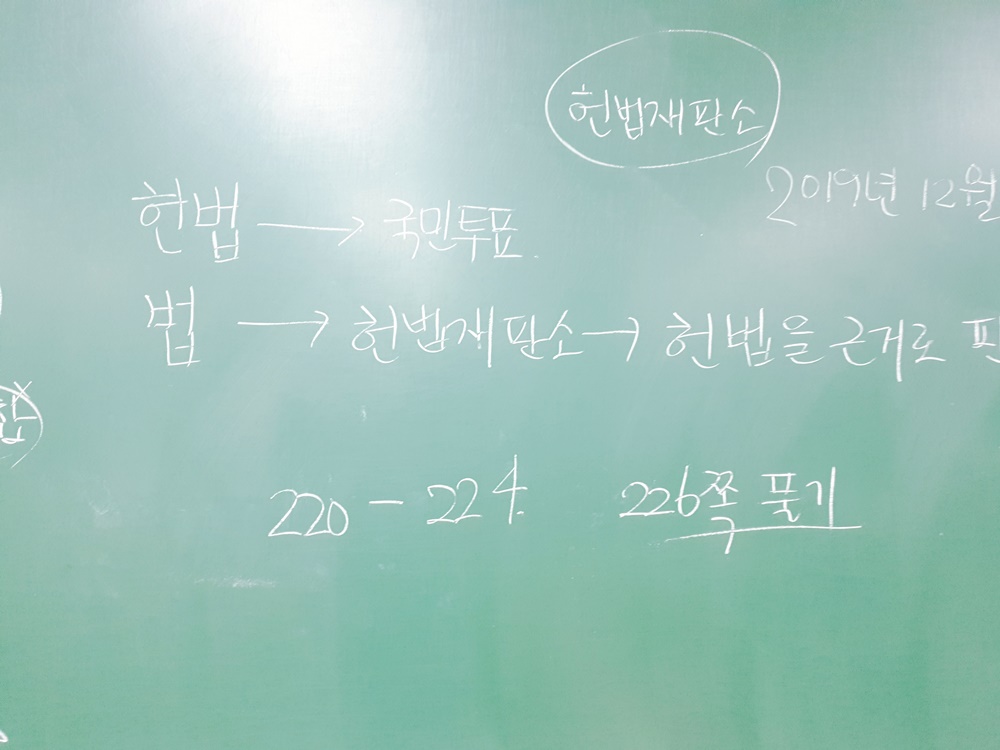 헌법재판소
2019년 12월
헌법 → 국민투표.
법 → 헌법재판소 → 헌법을 근거로
220 - 224. 226쪽 풀기